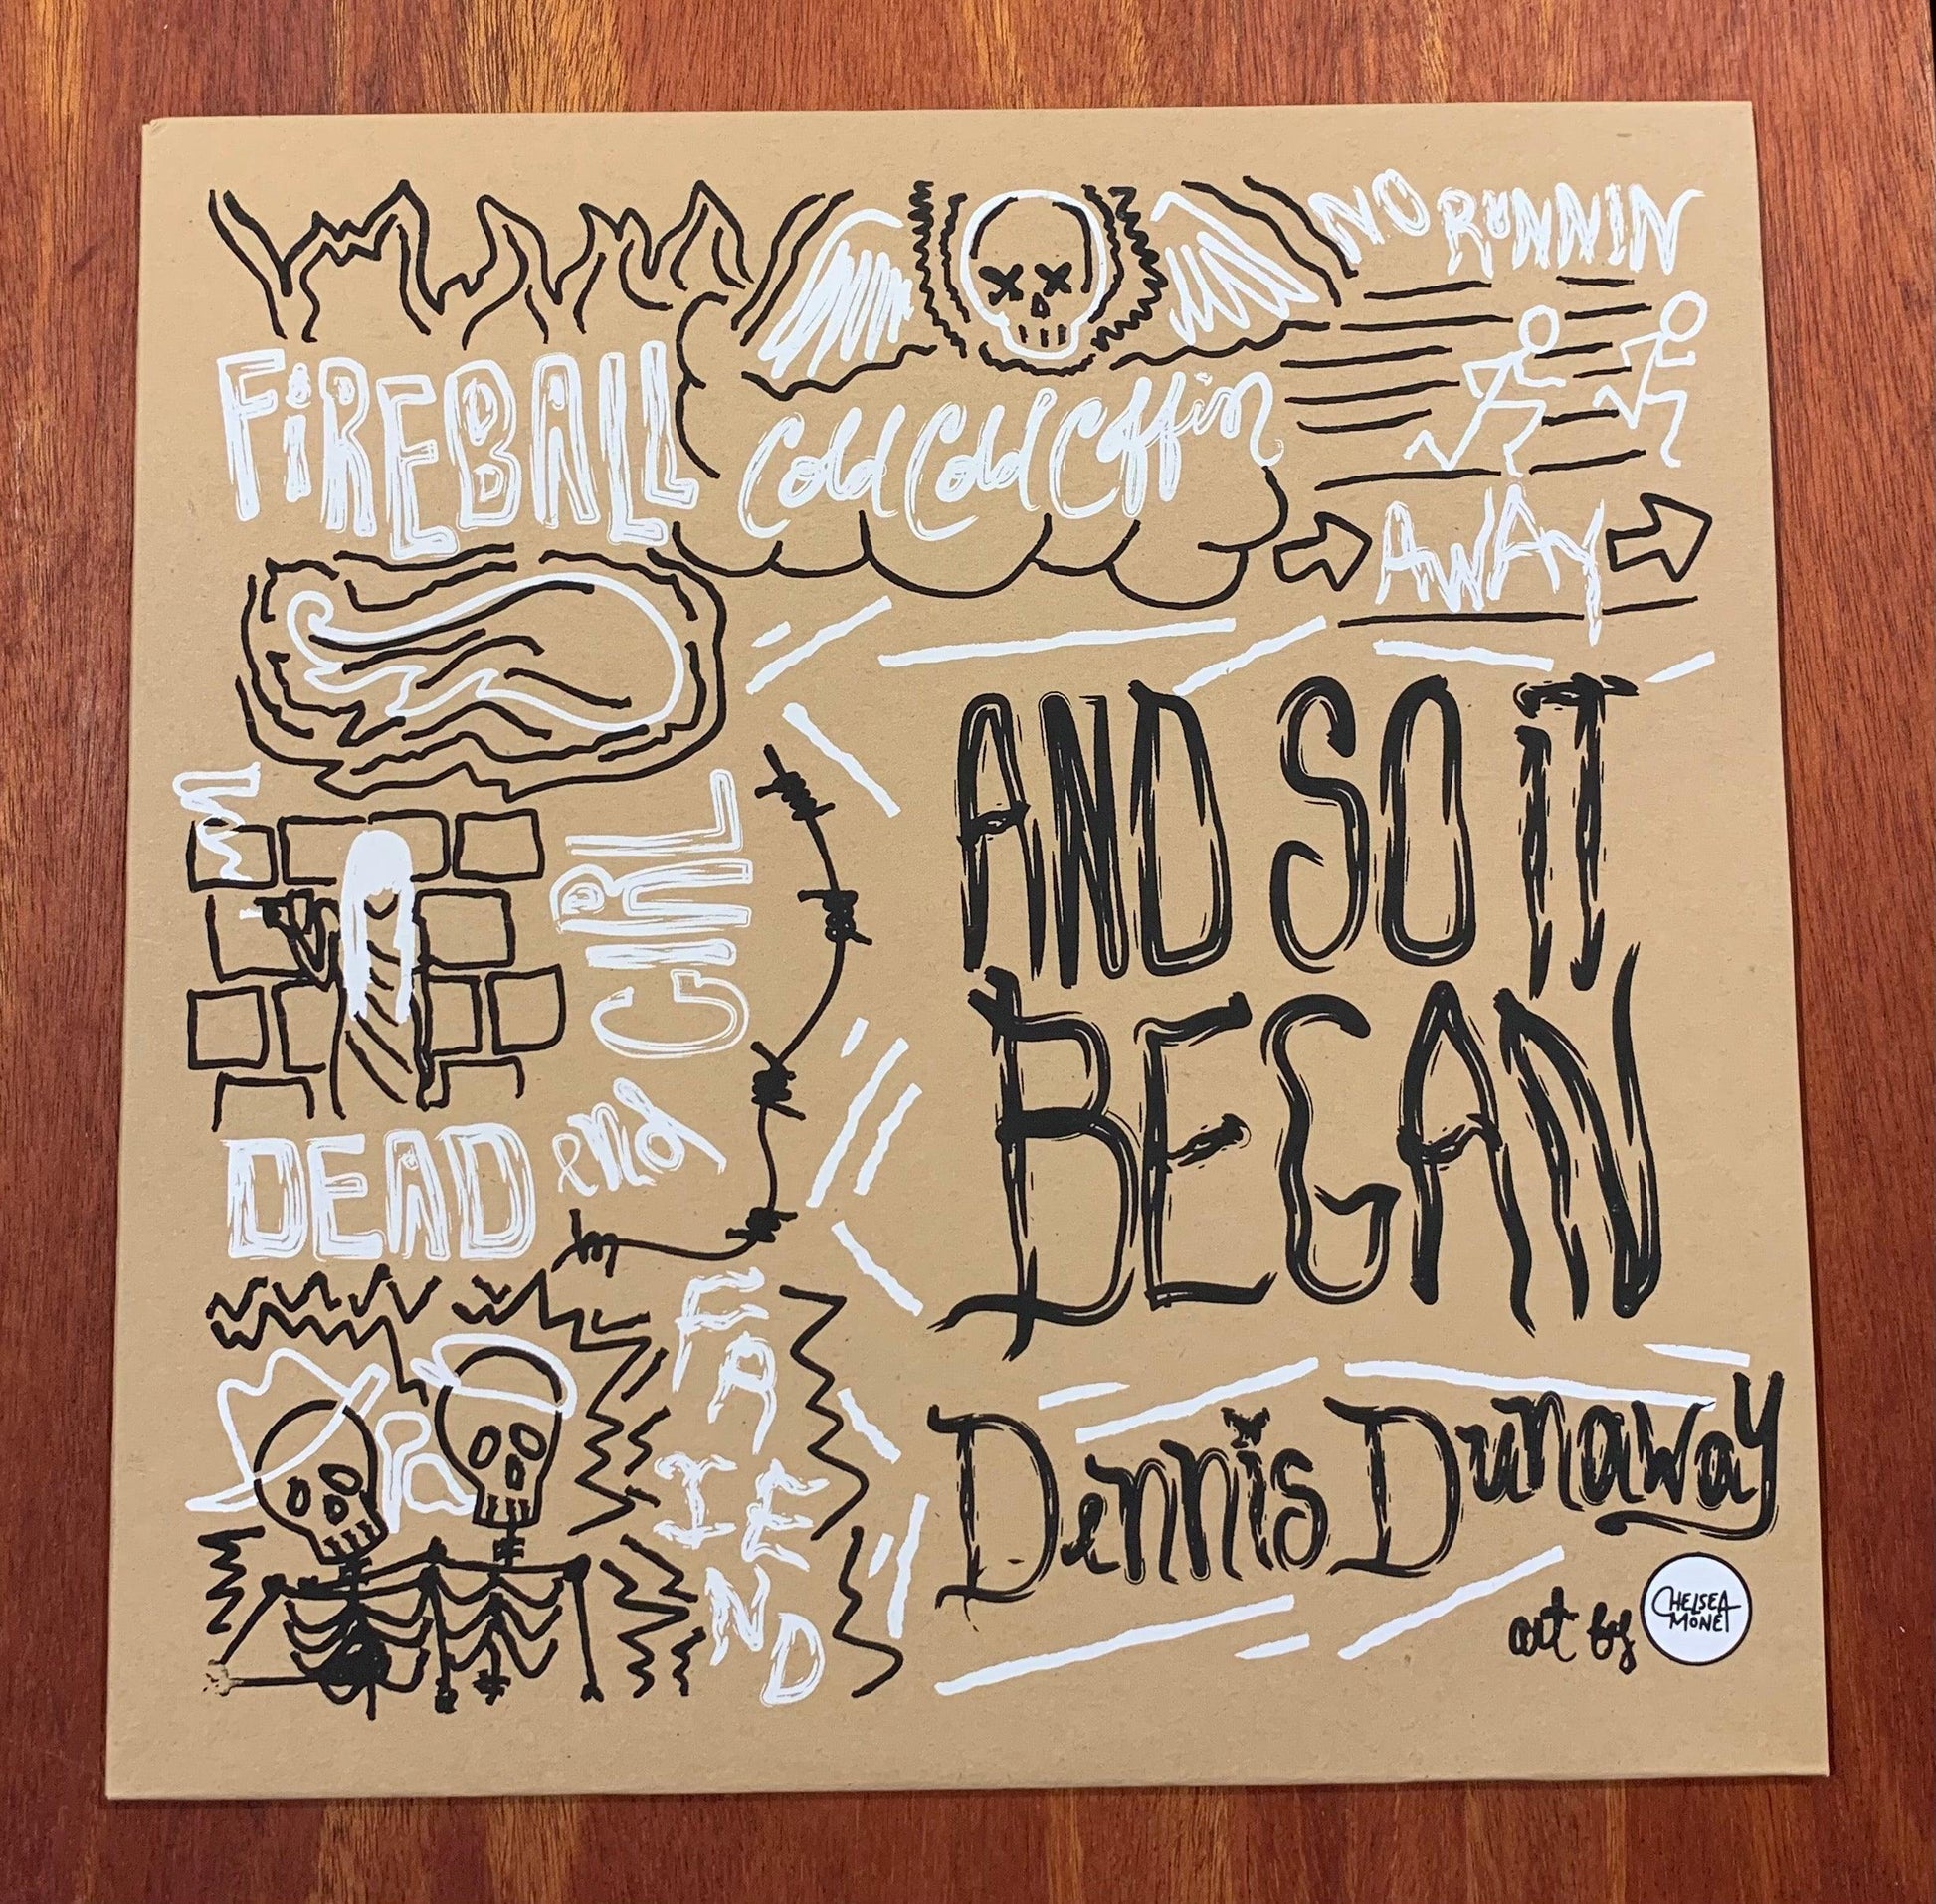 FiREBALL
Cold Cold Coffin
NO RUNNIN
AWAY
DEAD end
GIRL
FRIEND
AND SO IT
BEGAN
Dennis Dunaway
art by
CHELSEA
MONET